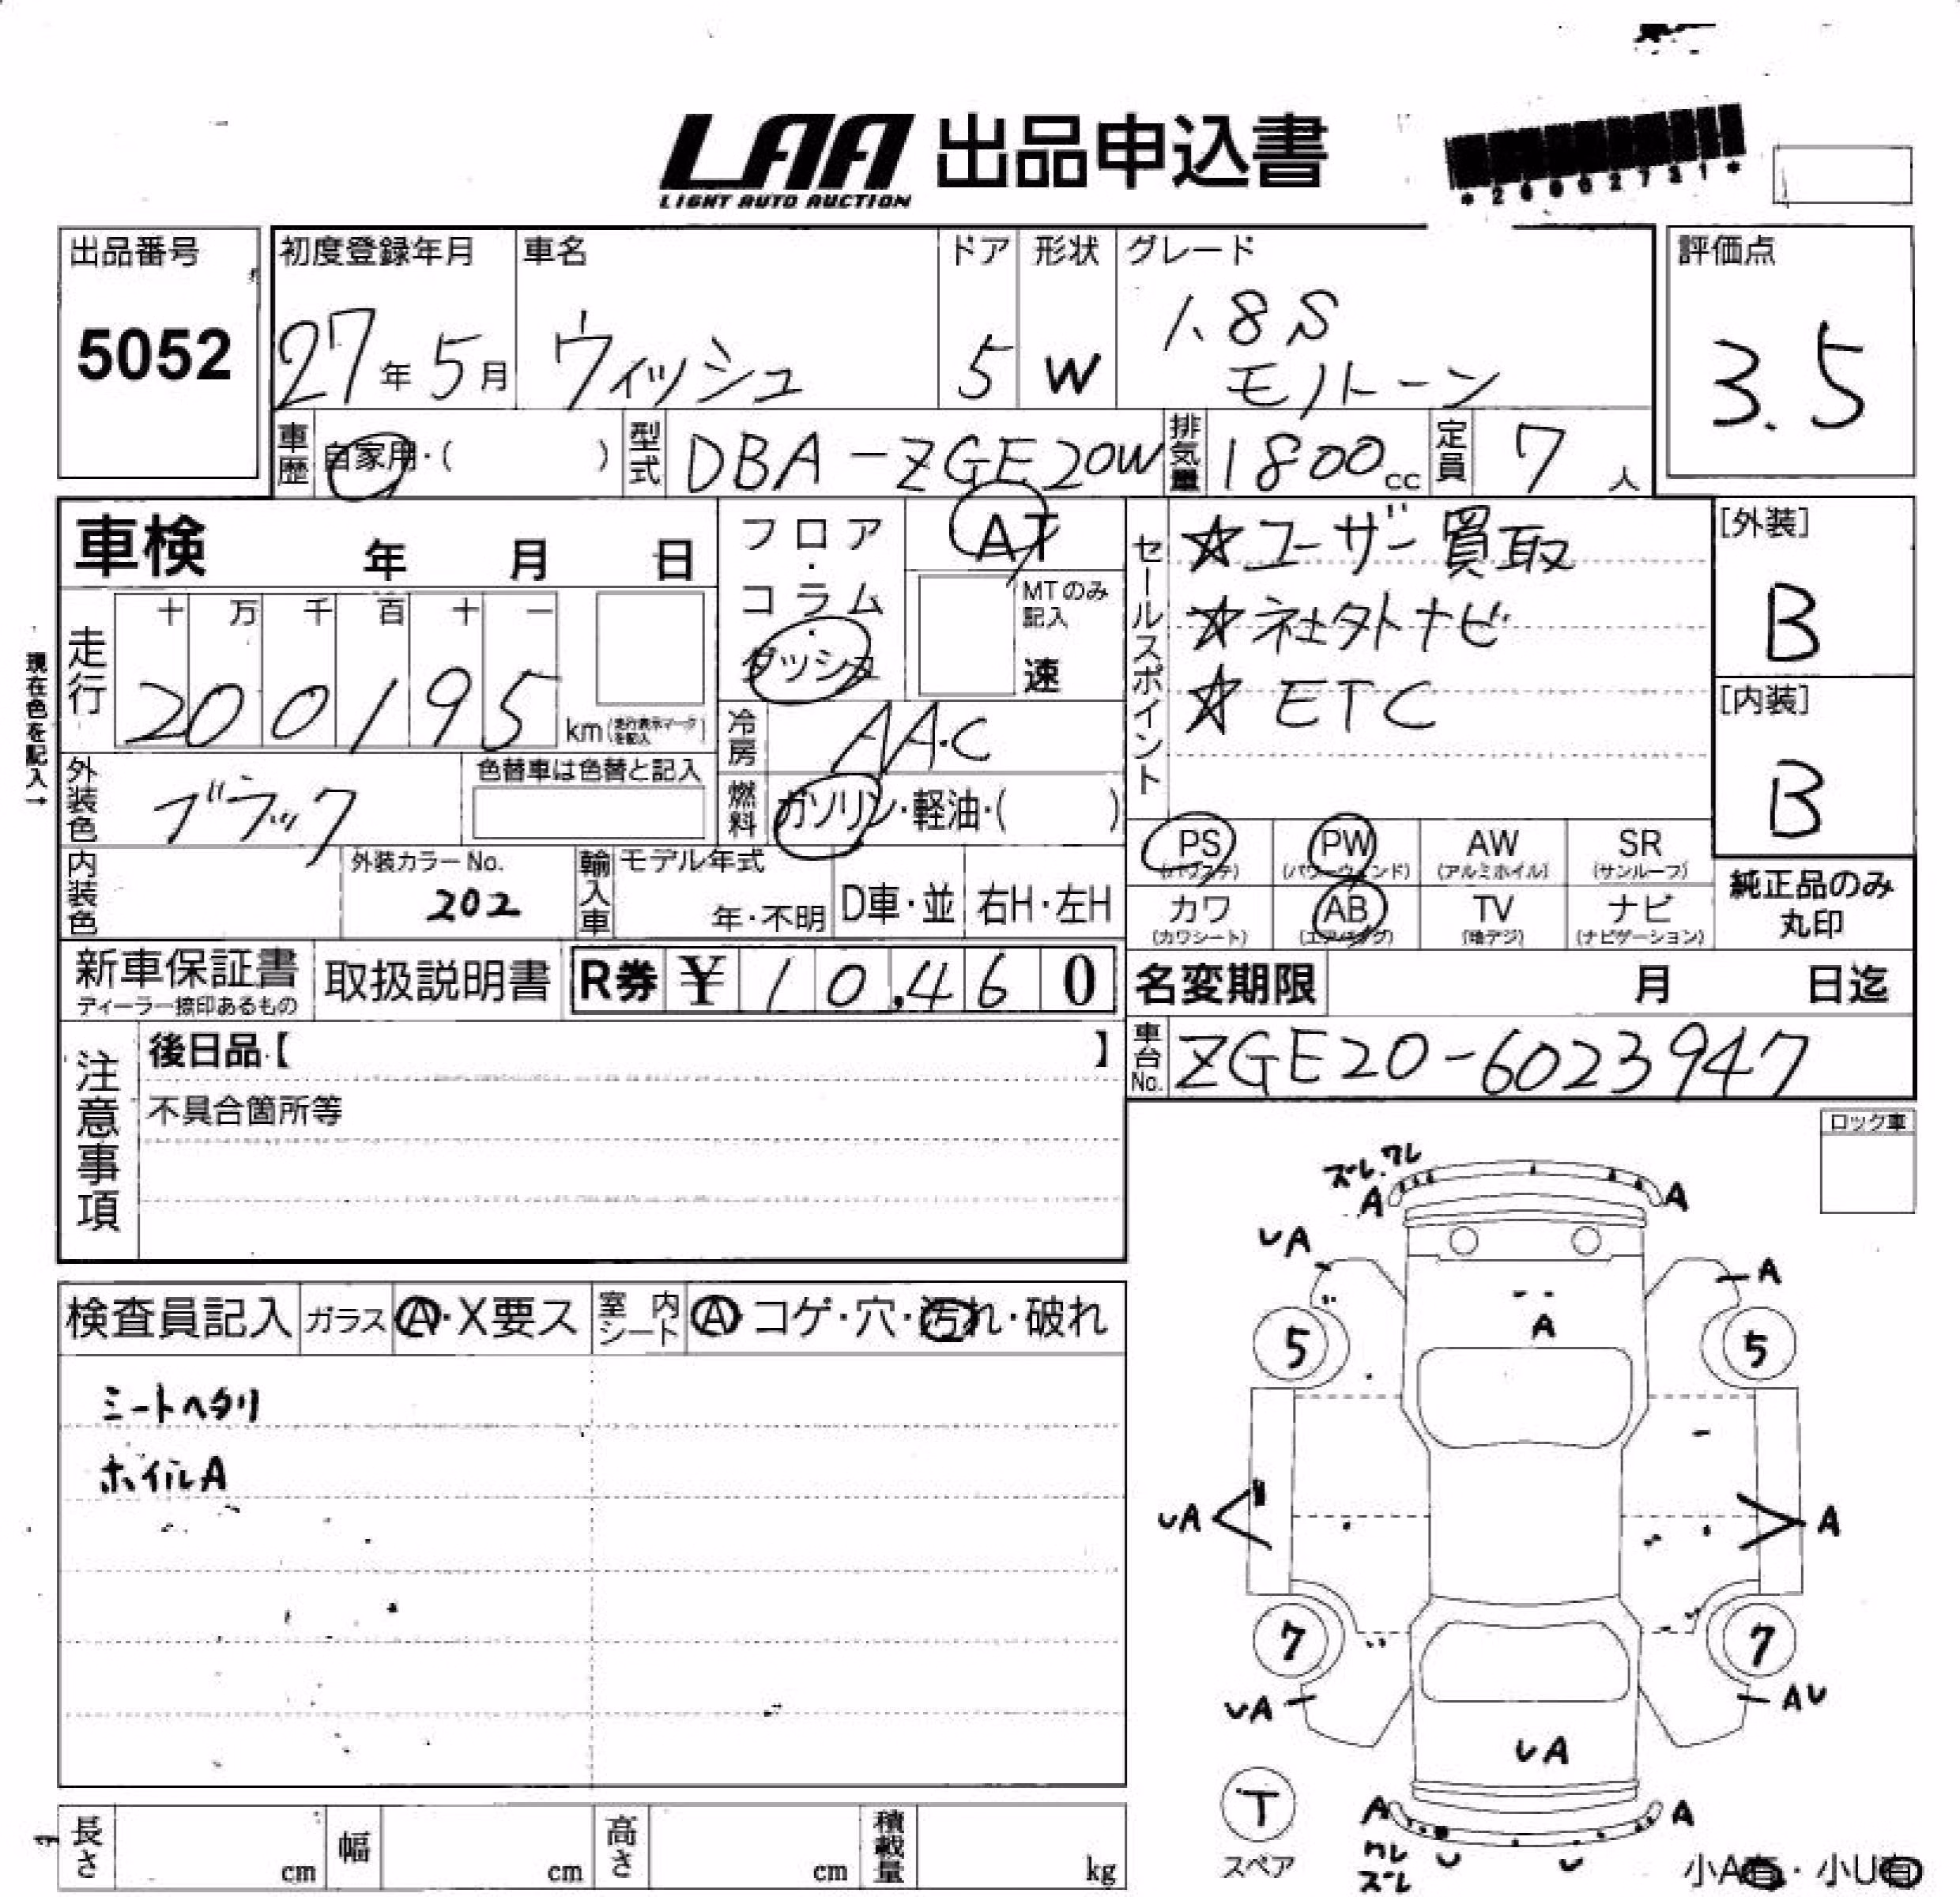 LAA 出品申込書
LIGHT AUTO AUCTION
出品番号
5052
初度登録年月
27年5月
車名
ウィッシュ
ドア
5
形状
W
グレード
1.8S
モノトーン
評価点
3.5
車歴
自家用・( )
型式
DBA-ZGE20W
排気量
1800cc
定員
7人
車検 年 月 日
現在色を記入→
走行
十 万 千 百 十 一
200195
km
外装色
ブラック
色替車は色替と記入
内装色
外装カラーNo.
202
フロア・コラム・ダッシュ
AT
MTのみ記入
速
冷房
AAC
燃料
ガソリン・軽油・( )
輸入車
モデル年式
年・不明
D車・並
右H・左H
セールスポイント
☆ユーザー買取
☆社外ナビ
☆ETC
[外装]
B
[内装]
B
PS
(パワステ)
PW
(パワーウィンド)
AW
(アルミホイル)
SR
(サンルーフ)
カワ
(カワシート)
AB
(エアバッグ)
TV
(地デジ)
ナビ
(ナビゲーション)
純正品のみ
丸印
新車保証書
ディーラー捺印あるもの
取扱説明書
R券 ¥10,460
名変期限 月 日迄
車台No.
ZGE20-6023947
注意事項
後日品【 】
不具合箇所等
ロック車
検査員記入
ガラス
A・X要ス
室内シート
A・コゲ・穴・汚れ・破れ
シートヘタリ
ホイルA
ズレ.ワレ
A
A
UA
A
A
5
5
UA
A
7
7
UA
AU
UA
T
スペア
A
A
ワレ
ズレ
U
U
小A有・小U有
長さ cm
幅 cm
高さ cm
積載量 kg